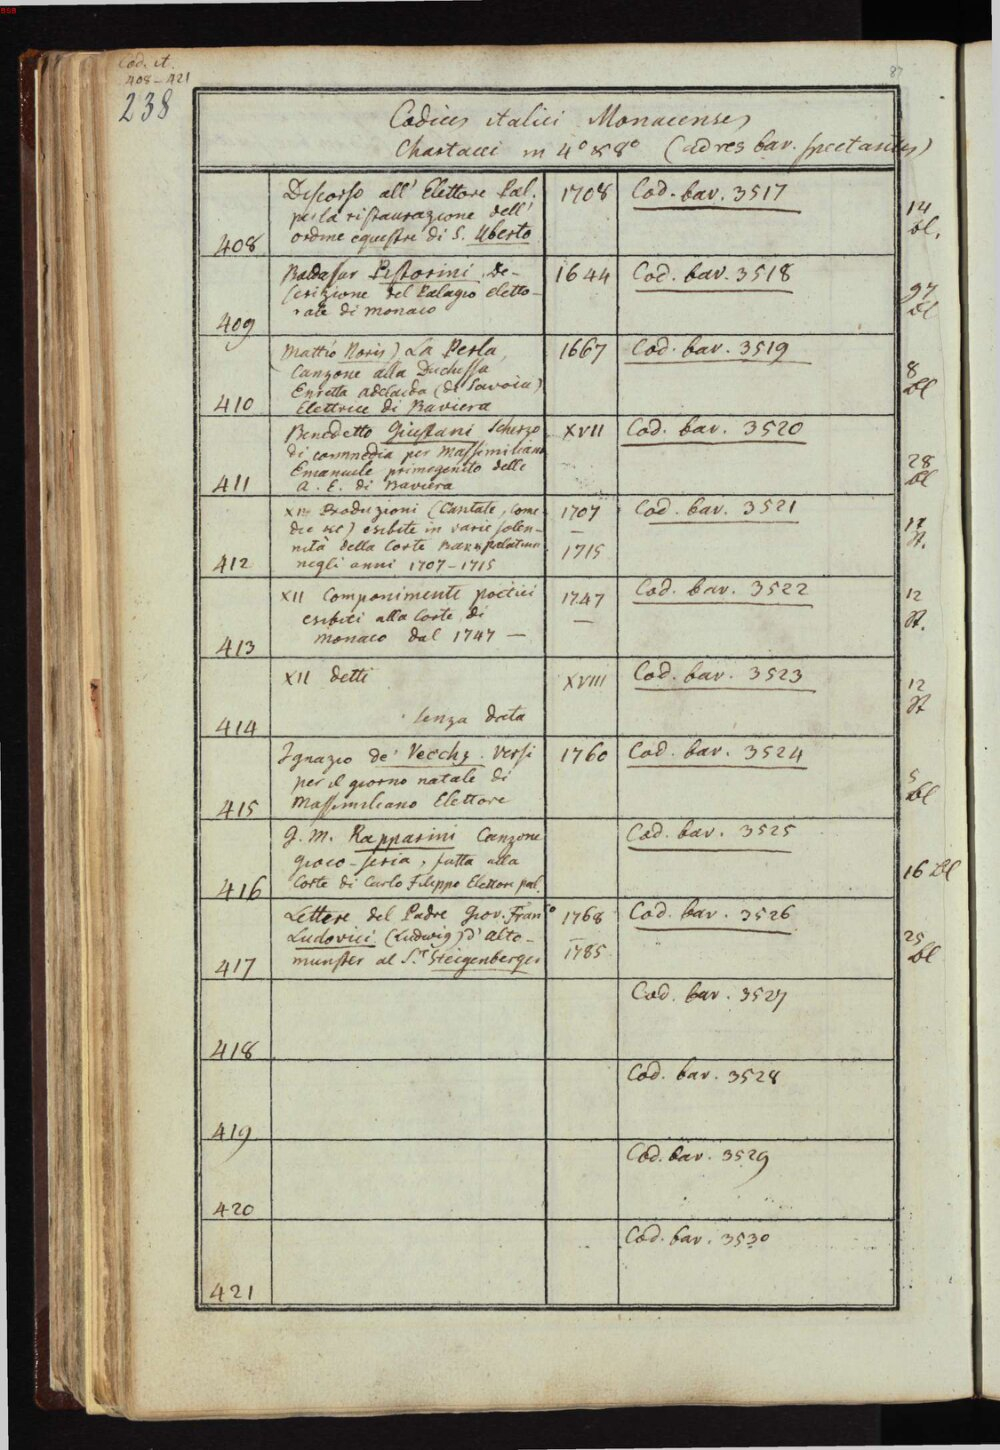 Cod. it.
408-421
238
87
Codices italici Monacenses
Chartacei in 4° & 8° (ad res bav. spectantes)
408
Discorso all' Elettore Pal.
per la ristaurazione dell'
ordine equestre di S. Uberto
1708
Cod. bav. 3517
14
Bl.
409
Baldasar Pistorini, De-
scrizione del Palagio eletto-
rale di Monaco
1644
Cod. bav. 3518
97
Bl
410
(Mattio Noris) La Perla,
Canzone alla Duchessa
Enretta Adelaida (di Savoia)
Elettrice di Baviera
1667
Cod. bav. 3519
8
Bl
411
Benedetto Giustani Scherzo
di commedia per Massimiliano
Emanuele primogenito delle
A. E. di Baviera
XVII
Cod. bav. 3520
28
Bl
412
Produzioni (Cantate, Come-
die &c) esibite in varie solen-
nità della Corte palatina
negli anni 1707-1715
1707
—
1715
Cod. bav. 3521
St.
413
XII Componimenti poetici
esibiti alla Corte di
Monaco dal 1747 —
1747
—
Cod. bav. 3522
12
St.
414
XII detti
senza data
XVIII
Cod. bav. 3523
12
St
415
Ignazio de' Vecchj. Versi
per il giorno natale di
Massimiliano Elettore
1760
Cod. bav. 3524
5
Bl
416
G. M. Rapparini Canzone
gioco-seria, fatta alla
Corte di Carlo Filippo Elettore pal.
Cod. bav. 3525
16 Bl
417
Lettere del Padre Giov. Franco
Ludovici (Ludwig) d' Alto-
munster al S.r Steigenberger
1768
—
1785
Cod. bav. 3526
25
Bl
418
Cod. bav. 3527
419
Cod. bav. 3528
420
Cod. bav. 3529
421
Cod. bav. 3530